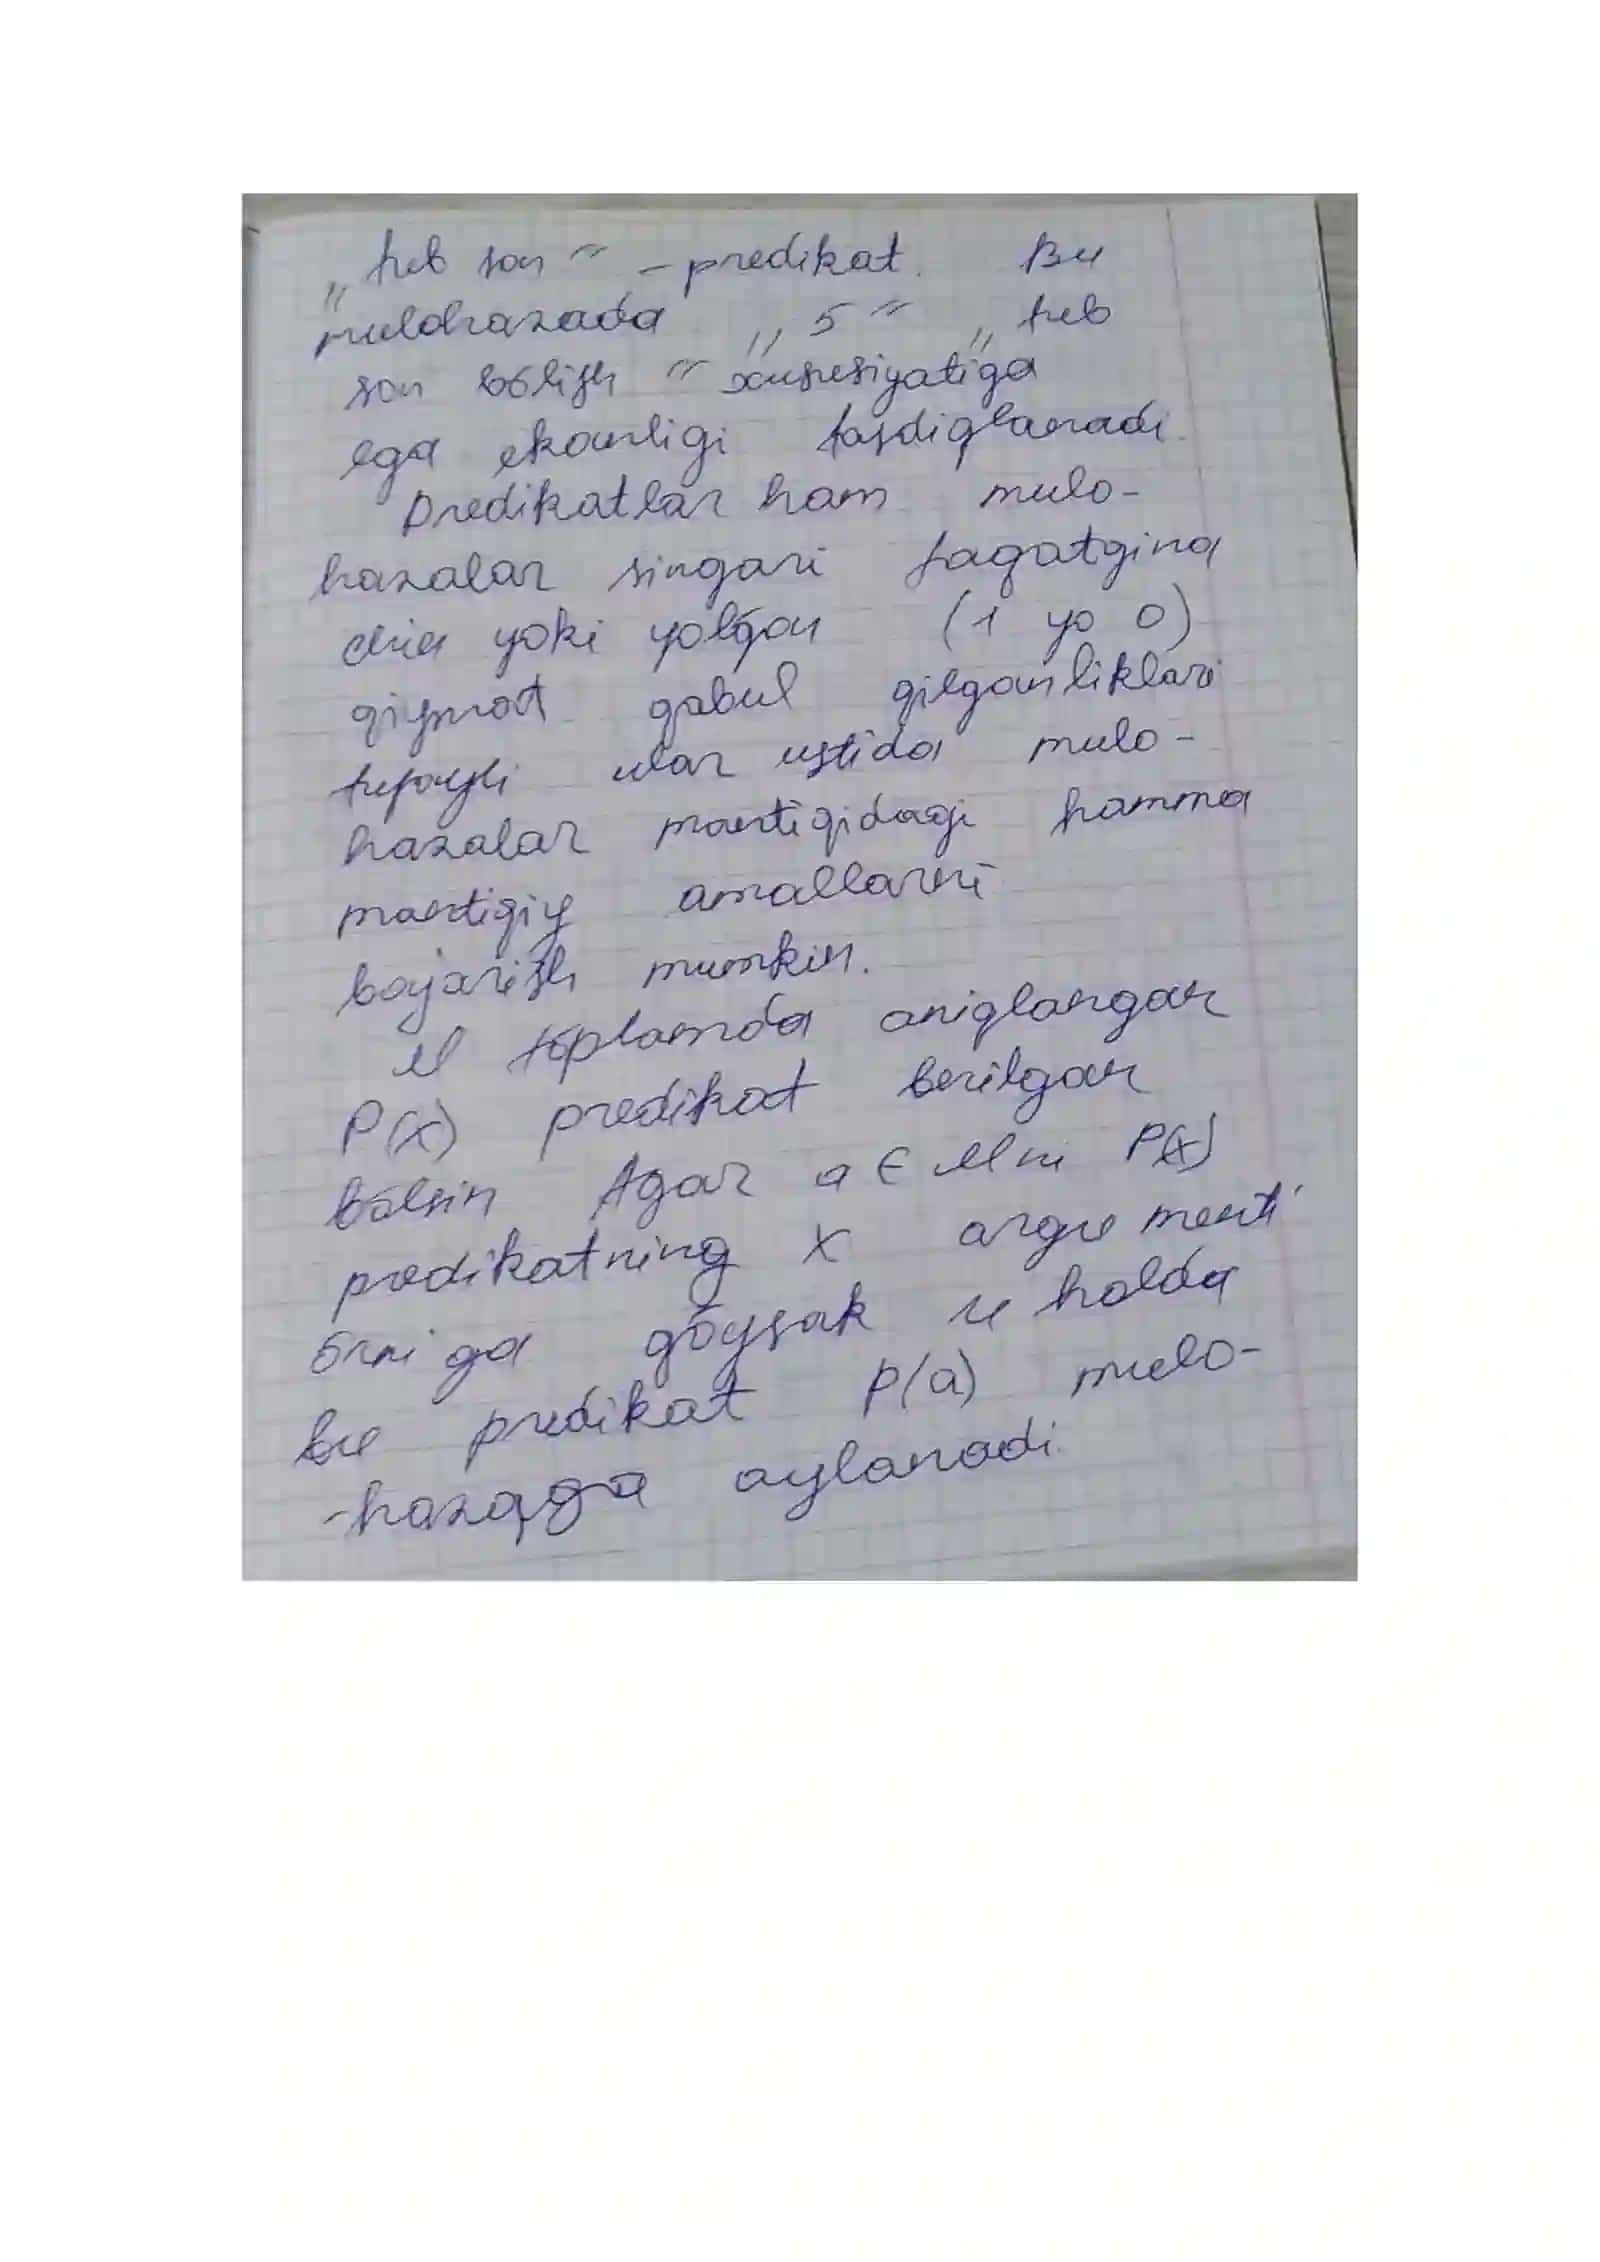 „tub son" - predikat. Bu
mulohazada „5" „tub
son bólish" xususiyatiga
ega ekanligi tasdiqlanadi.
Predikatlar ham mulo-
hazalar singari faqatgina
chin yoki yolǵon (1 yo 0)
qiymat qabul qilganliklari
tufayli ular ustida mulo-
hazalar mantiqidagi hamma
mantiqiy amallarni
bajarish mumkin.
M tóplamda aniqlangan
P(x) predikat berilgan
bólsin Agar a ∈ M ni P(x)
predikatning x argumenti
órniga qóysak u holda
bu predikat P(a) mulo-
-hazaga aylanadi.